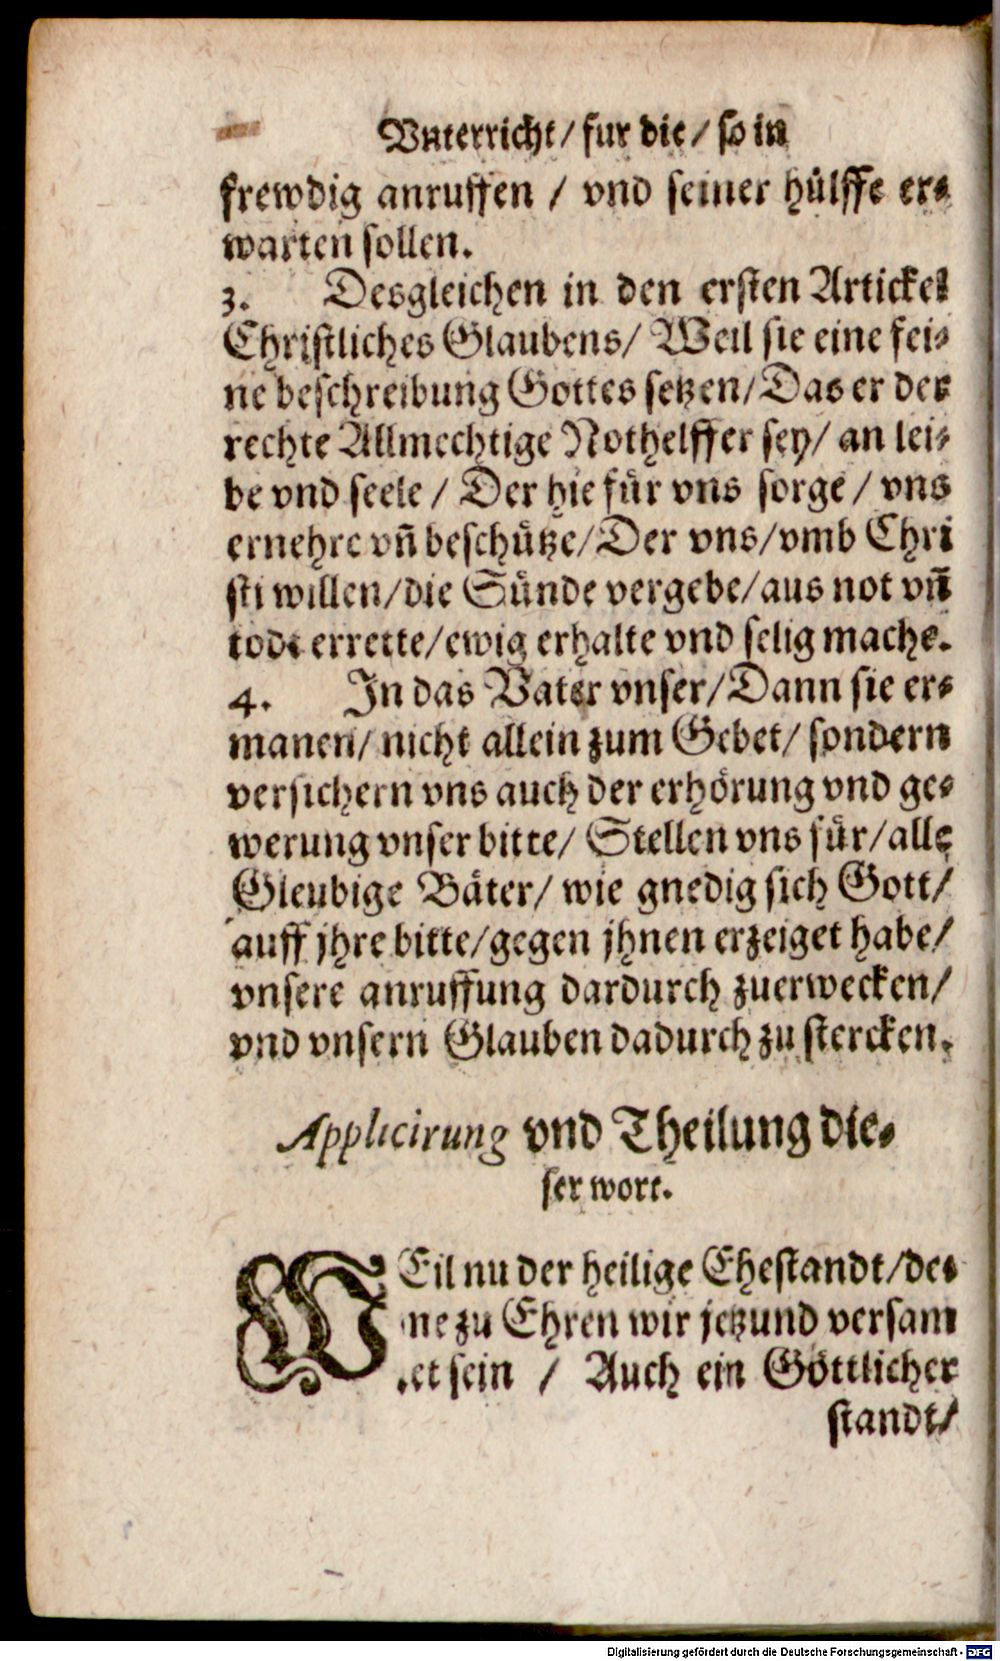 Vnterricht/ fur die/ so in
frewdig anruffen / vnd seiner hülffe er⸗
warten sollen.
3. Desgleichen in den ersten Artickel
Christliches Glaubens/ Weil sie eine fei⸗
ne beschreibung Gottes setzen/ Das er der
rechte Allmechtige Nothelffer sey/ an lei⸗
be vnd seele / Der hie für vns sorge / vns
ernehre vñ beschütze/ Der vns/ vmb Chri
sti willen/ die Sünde vergebe/ aus not vñ
todt errette/ ewig erhalte vnd selig mache.
4. In das Vater vnser/ Dann sie er⸗
manen/ nicht allein zum Gebet/ sondern
versichern vns auch der erhörung vnd ge⸗
werung vnser bitte/ Stellen vns für/ alle
Gleubige Väter/ wie gnedig sich Gott/
auff jhre bitte/ gegen jhnen erzeiget habe/
vnsere anruffung dardurch zuerwecken/
vnd vnsern Glauben dadurch zu stercken.
Applicirung vnd Theilung die⸗
ser wort.
WEil nu der heilige Ehestandt/ de⸗
ne zu Ehren wir jetzund versam
let sein / Auch ein Göttlicher
standt/
Digitalisierung gefördert durch die Deutsche Forschungsgemeinschaft - DFG